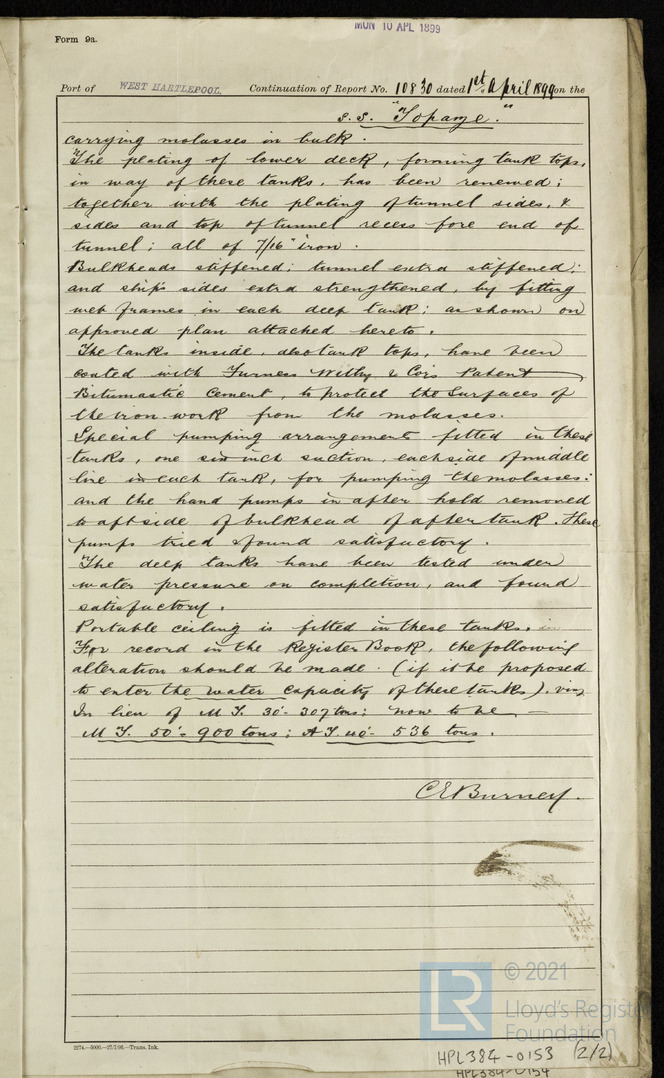 MON 10 APL 1899
Form 9a.
Port of WEST HARTLEPOOL. Continuation of Report No. 10830 dated 1st April 1899 on the
S.S. "Topaze."
carrying molasses in bulk.
The plating of lower deck, forming tank tops,
in way of these tanks, has been renewed;
together with the plating of tunnel sides, &
sides and top of tunnel recess fore end of
tunnel; all of 7/16" iron.
Bulkheads stiffened; tunnel extra stiffened;
and ship's sides extra strengthened, by fitting
web frames in each deep tank; as shown on
approved plan attached hereto.
The tanks inside, also tank tops, have been
coated with Furness Withy & Co's Patent
Bitumastic Cement, to protect the surfaces of
the iron-work from the molasses.
Special pumping arrangements fitted in these
tanks, one six inch suction, each side of middle
line in each tank, for pumping the molasses:
and the hand pumps in after hold removed
to aft side of bulkhead of after tank. These
pumps tried & found satisfactory.
The deep tanks have been tested under
water pressure on completion, and found
satisfactory.
Portable ceiling is fitted in these tanks.
For record in the Register Book, the following
alteration should be made. (if it be proposed
to enter the water capacity of these tanks). viz,
In lieu of M T. 30'- 307 tons: now to be
M T. 50'- 900 tons; A T. 40'- 536 tons.
C E Burney.
2274.—5000.—27/7/98.—Trans. Ink.
LR
© 2021
Lloyd's Register
Foundation
HPL384-0153 (2/2)
HPL384-0154